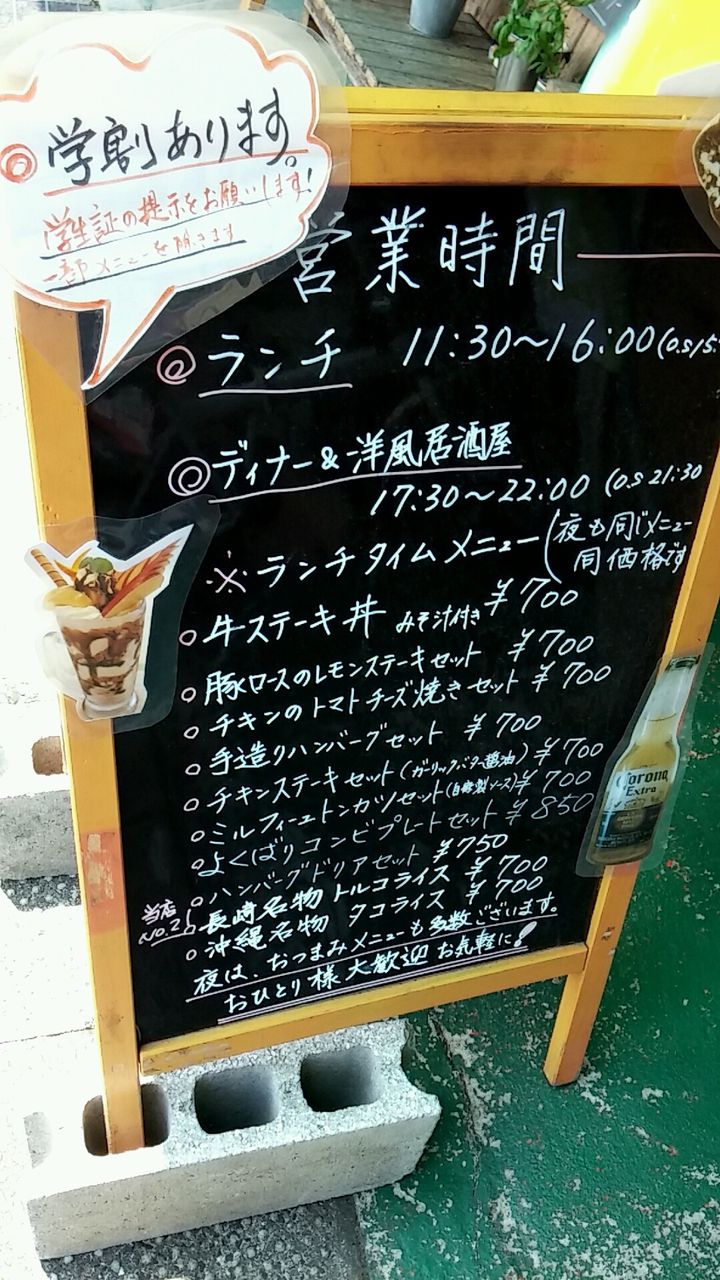 ◎学割あります。
学生証の提示をお願いします!
一部メニューを除きます
営業時間
◎ランチ 11:30〜16:00(o.s15:
◎ディナー&洋風居酒屋
17:30〜22:00 (o.s 21:30
※ランチタイムメニュー(夜も同じメニュー
同価格です
○牛ステーキ丼 みそ汁付き ¥700
○豚ロースのレモンステーキセット ¥700
○チキンのトマトチーズ焼きセット ¥700
○手造りハンバーグセット ¥700
○チキンステーキセット(ガーリックバター醤油) ¥700
○ミルフィーユトンカツセット(自家製ソース) ¥700
○よくばりコンビプレートセット ¥850
○ハンバーグドリアセット ¥750
当店No.2! ○長崎名物 トルコライス ¥700
○沖縄名物 タコライス ¥700
夜は、おつまみメニューも多数ございます。
おひとり様大歓迎 お気軽に!
Corona
Extra